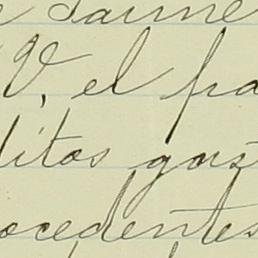 Jaime
V, el pa
ditos gas
ocedentes